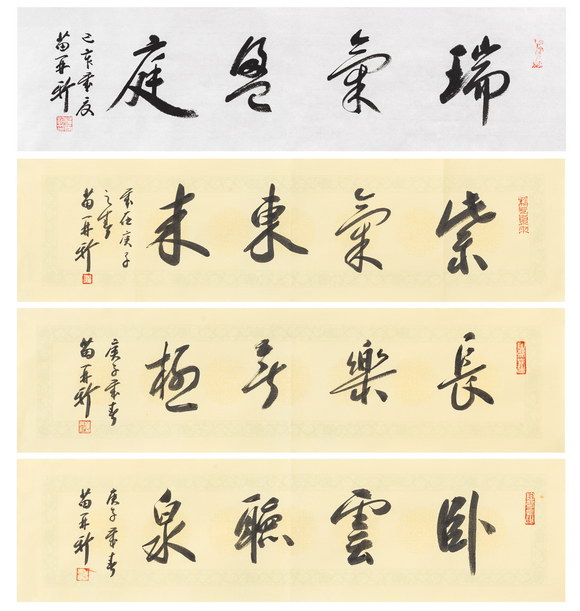 瑞氣盈庭
己亥歲
苗再新
紫氣東来
歲在庚子
之春
苗再新
長樂無極
庚子歲春
苗再新
卧雲聽泉
庚子歲春
苗再新